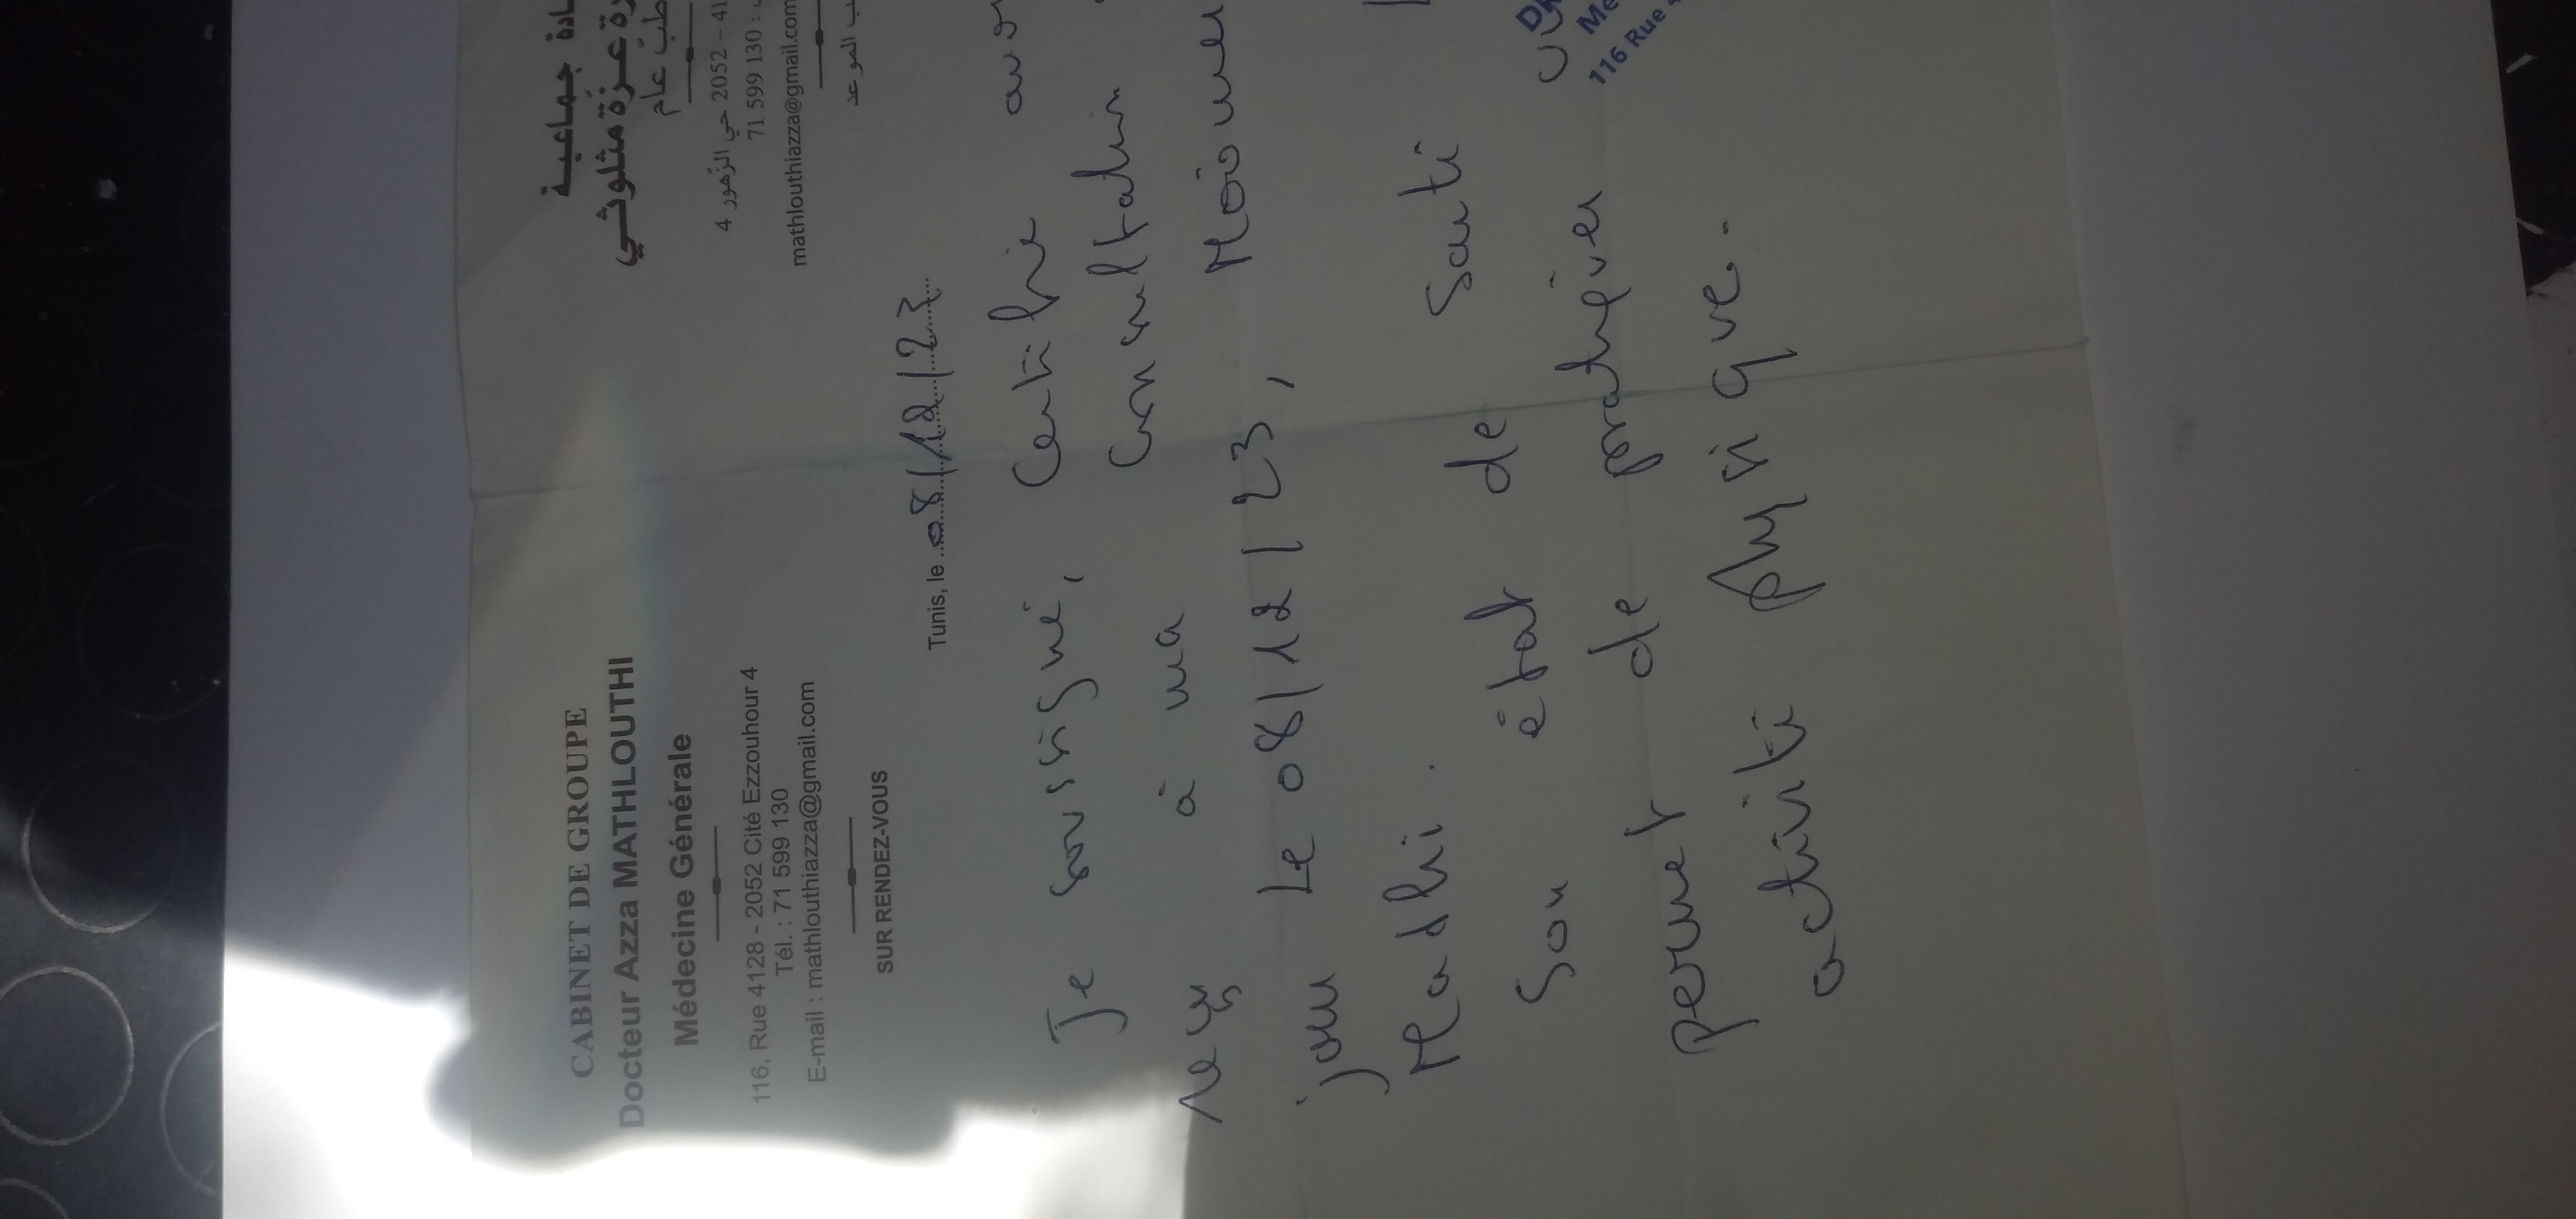 CABINET DE GROUPE
Docteur Azza MATHLOUTHI
Médecine Générale
116, Rue 4128 - 2052 Cité Ezzouhour 4
Tél. : 71 599 130
E-mail : mathlouthiazza@gmail.com
SUR RENDEZ-VOUS
جماعية
عزة مثلوثي
طب عام
2052 حي الزهور 4
71 599 130 :
mathlouthiazza@gmail.com
Tunis, le 08/12/23
Je soussigné, Certifie
reçu à ma Consultation
jour Le 08/12/23,
Son état de Santi
permet de pratiquer
activité physique.
116 Rue